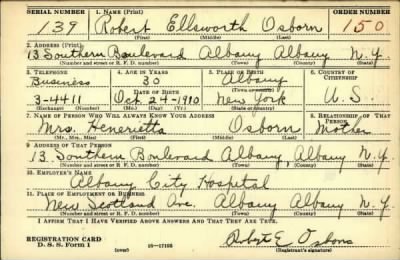 SERIAL NUMBER 1. NAME (Print) ORDER NUMBER
139 Robert Ellsworth Osborn 150
(First) (Middle) (Last)
2. ADDRESS (Print)
13 Southern Boulevard Albany Albany N.Y.
(Number and street or R. F. D. number) (Town) (County) (State)
3. TELEPHONE 4. AGE IN YEARS 5. PLACE OF BIRTH 6. COUNTRY OF CITIZENSHIP
Business 30 Albany
DATE OF BIRTH (Town or county)
3-4411 Oct. 24-1910 New York U.S.
(Exchange) (Number) (Mo.) (Day) (Yr.) (State or country)
7. NAME OF PERSON WHO WILL ALWAYS KNOW YOUR ADDRESS 8. RELATIONSHIP OF THAT PERSON
Mrs. Henerietta Osborn Mother
(Mr., Mrs., Miss) (First) (Middle) (Last)
9. ADDRESS OF THAT PERSON
13. Southern Boulevard Albany, Albany N.Y.
(Number and street or R. F. D. number) (Town) (County) (State)
10. EMPLOYER'S NAME
Albany City Hospital
11. PLACE OF EMPLOYMENT OR BUSINESS
New Scotland Ave. Albany Albany N.Y.
(Number and street or R. F. D. number) (Town) (County) (State)
I AFFIRM THAT I HAVE VERIFIED ABOVE ANSWERS AND THAT THEY ARE TRUE.
REGISTRATION CARD
D. S. S. Form 1 (over) 16-17105 Robert E Osborn
(Registrant's signature)